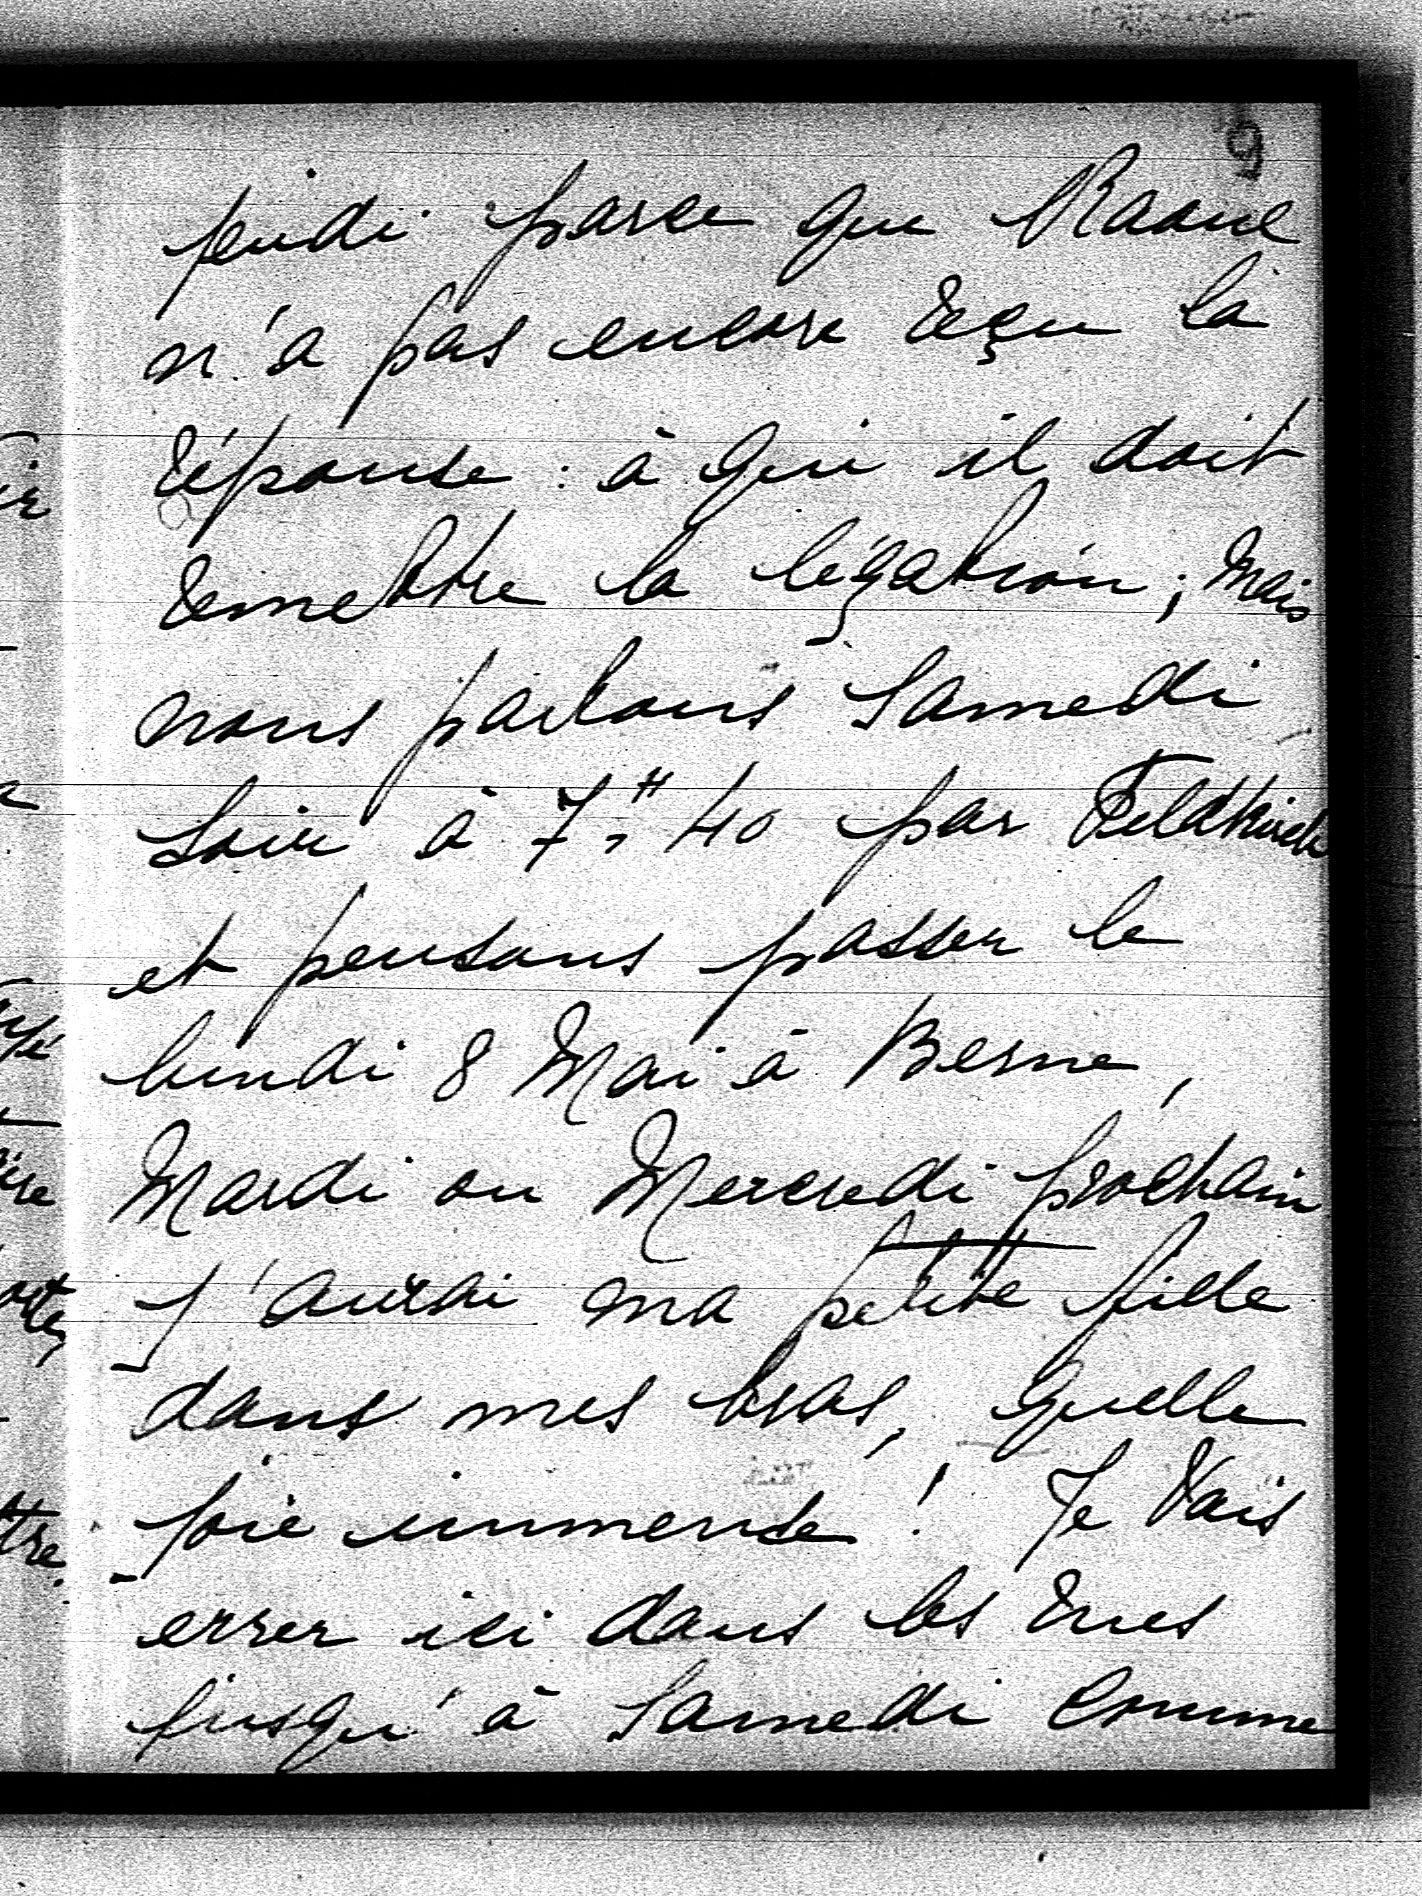 9
jeudi parce que Raoul
n'a pas encore reçu la
réponse : à qui il doit
remettre la légation ; mais
nous partons Samedi
soir à 7,H 40 par Feldkirch
et pensons passer le
lundi 8 Mai à Berne,
Mardi ou Mercredi prochain
j'aurai ma petite fille
dans mes bras, quelle
joie immense ! Je vais
errer ici dans les rues
jusqu'à Samedi comme